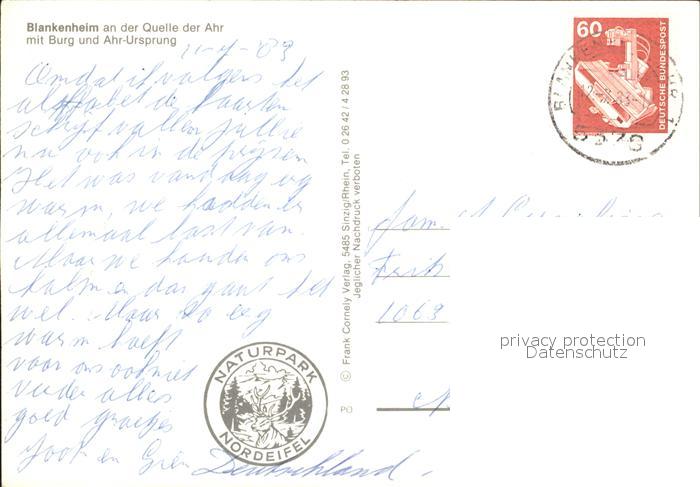 Blankenheim an der Quelle der Ahr
mit Burg und Ahr-Ursprung
11-7-83
Omdat ik volgens het
alfabet de kaarten
schrijf vallen jullie
nu ook in de prijzen
Het was vandaag erg
warm, we hadden er
allemaal last van.
Maar we houden ons
kalm en dan gaat het
wel. Maar zo erg
warm hoeft
voor ons ook niet
Verder alles
goed groetjes
Joop en
Deutschland
NATURPARK
NORDEIFEL
© Frank Cornely Verlag, 5485 Sinzig/Rhein, Tel. 0 26 42 / 4 28 93
Jeglicher Nachdruck verboten
PO
60
DEUTSCHE BUNDESPOST
5378
Fam.
1063
privacy protection
Datenschutz